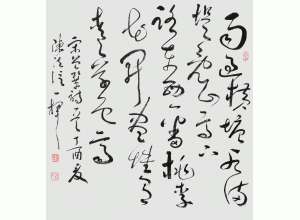 雨過橫塘水滿
堤亂山高下
路東西一番桃李
花開盡惟有
青青草色齊
宋曾鞏詩一首丁酉夏